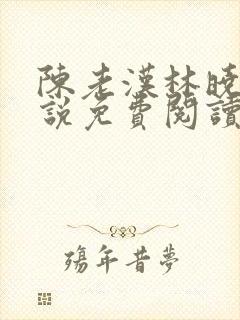 陳老漢林曉
說免費閱讀
殤年昔夢